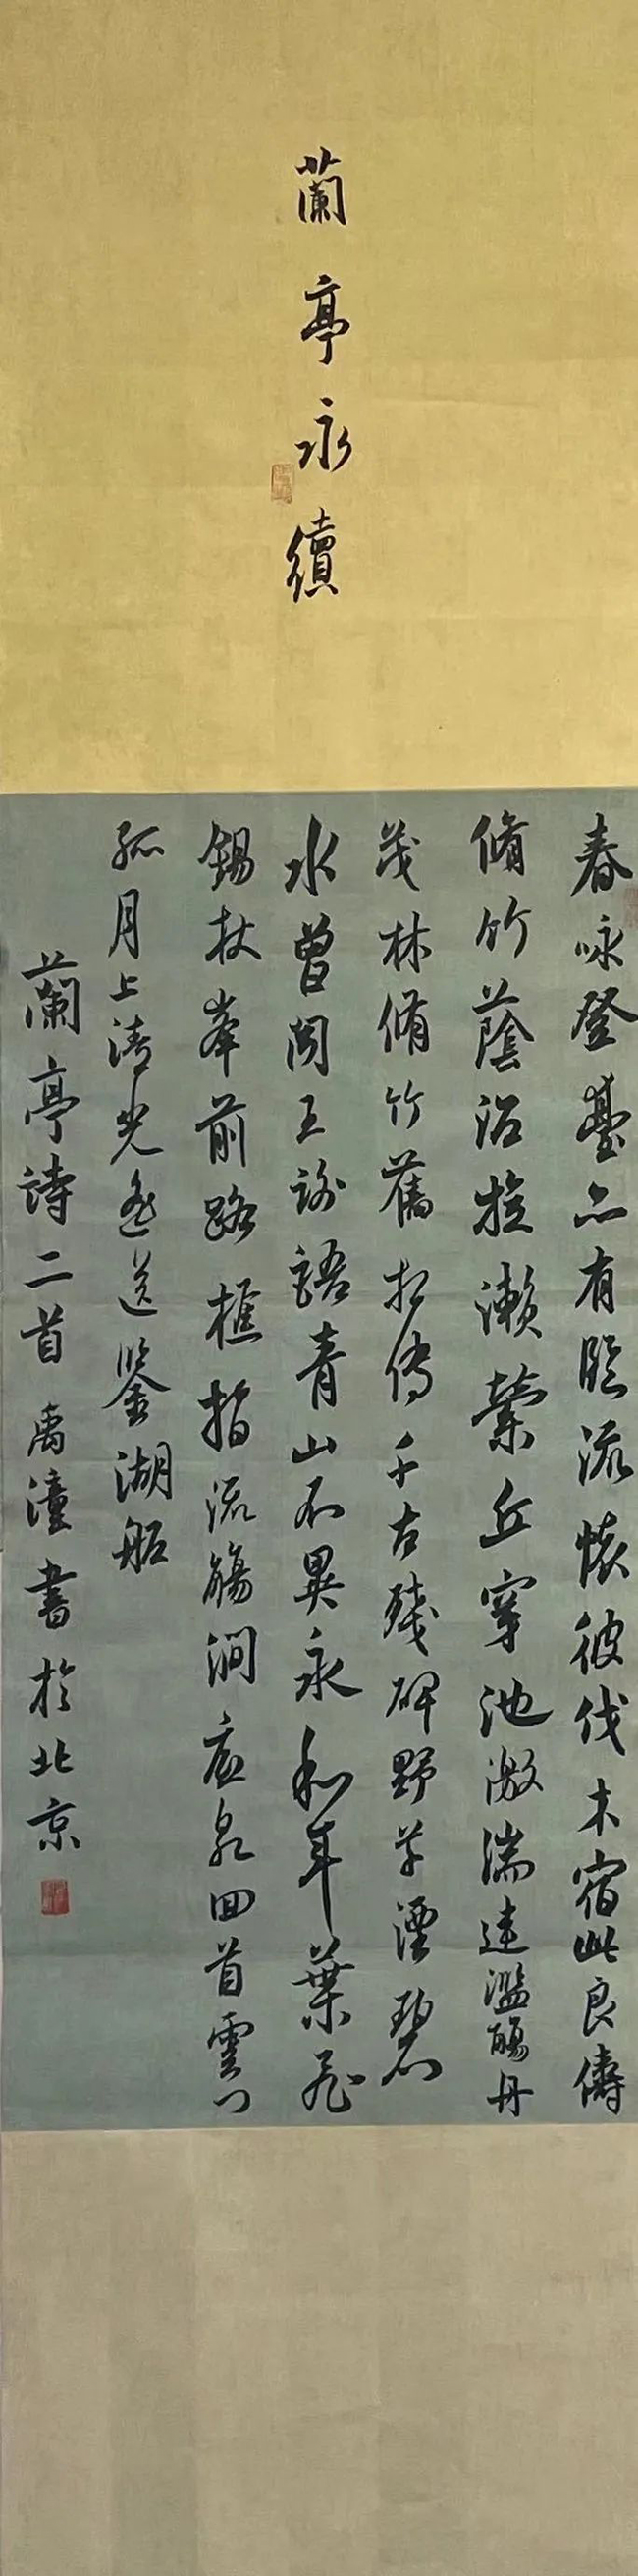 蘭亭永續
春咏登臺亦有臨流懷彼伐木宿此良儔
脩竹蔭沼旋瀨縈丘穿池激湍連濫觴舟
茂林脩竹舊相傳千古殘碑野草湮碧
水曾聞王謝語青山不異永和年葉飛
錫杖峯前路樵指流觴澗底泉回首雲門
孤月上清光遙送鑒湖船
蘭亭詩二首 禹潼書於北京